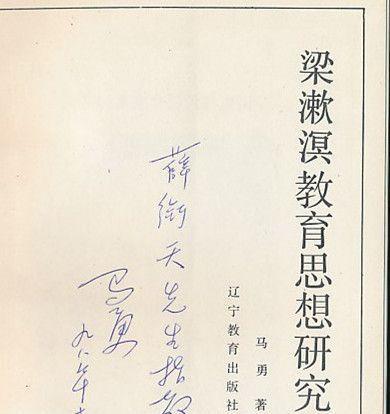 梁漱溟教育思想研究
马勇著
辽宁教育出版社
薛衔天先生指
马勇
九八年